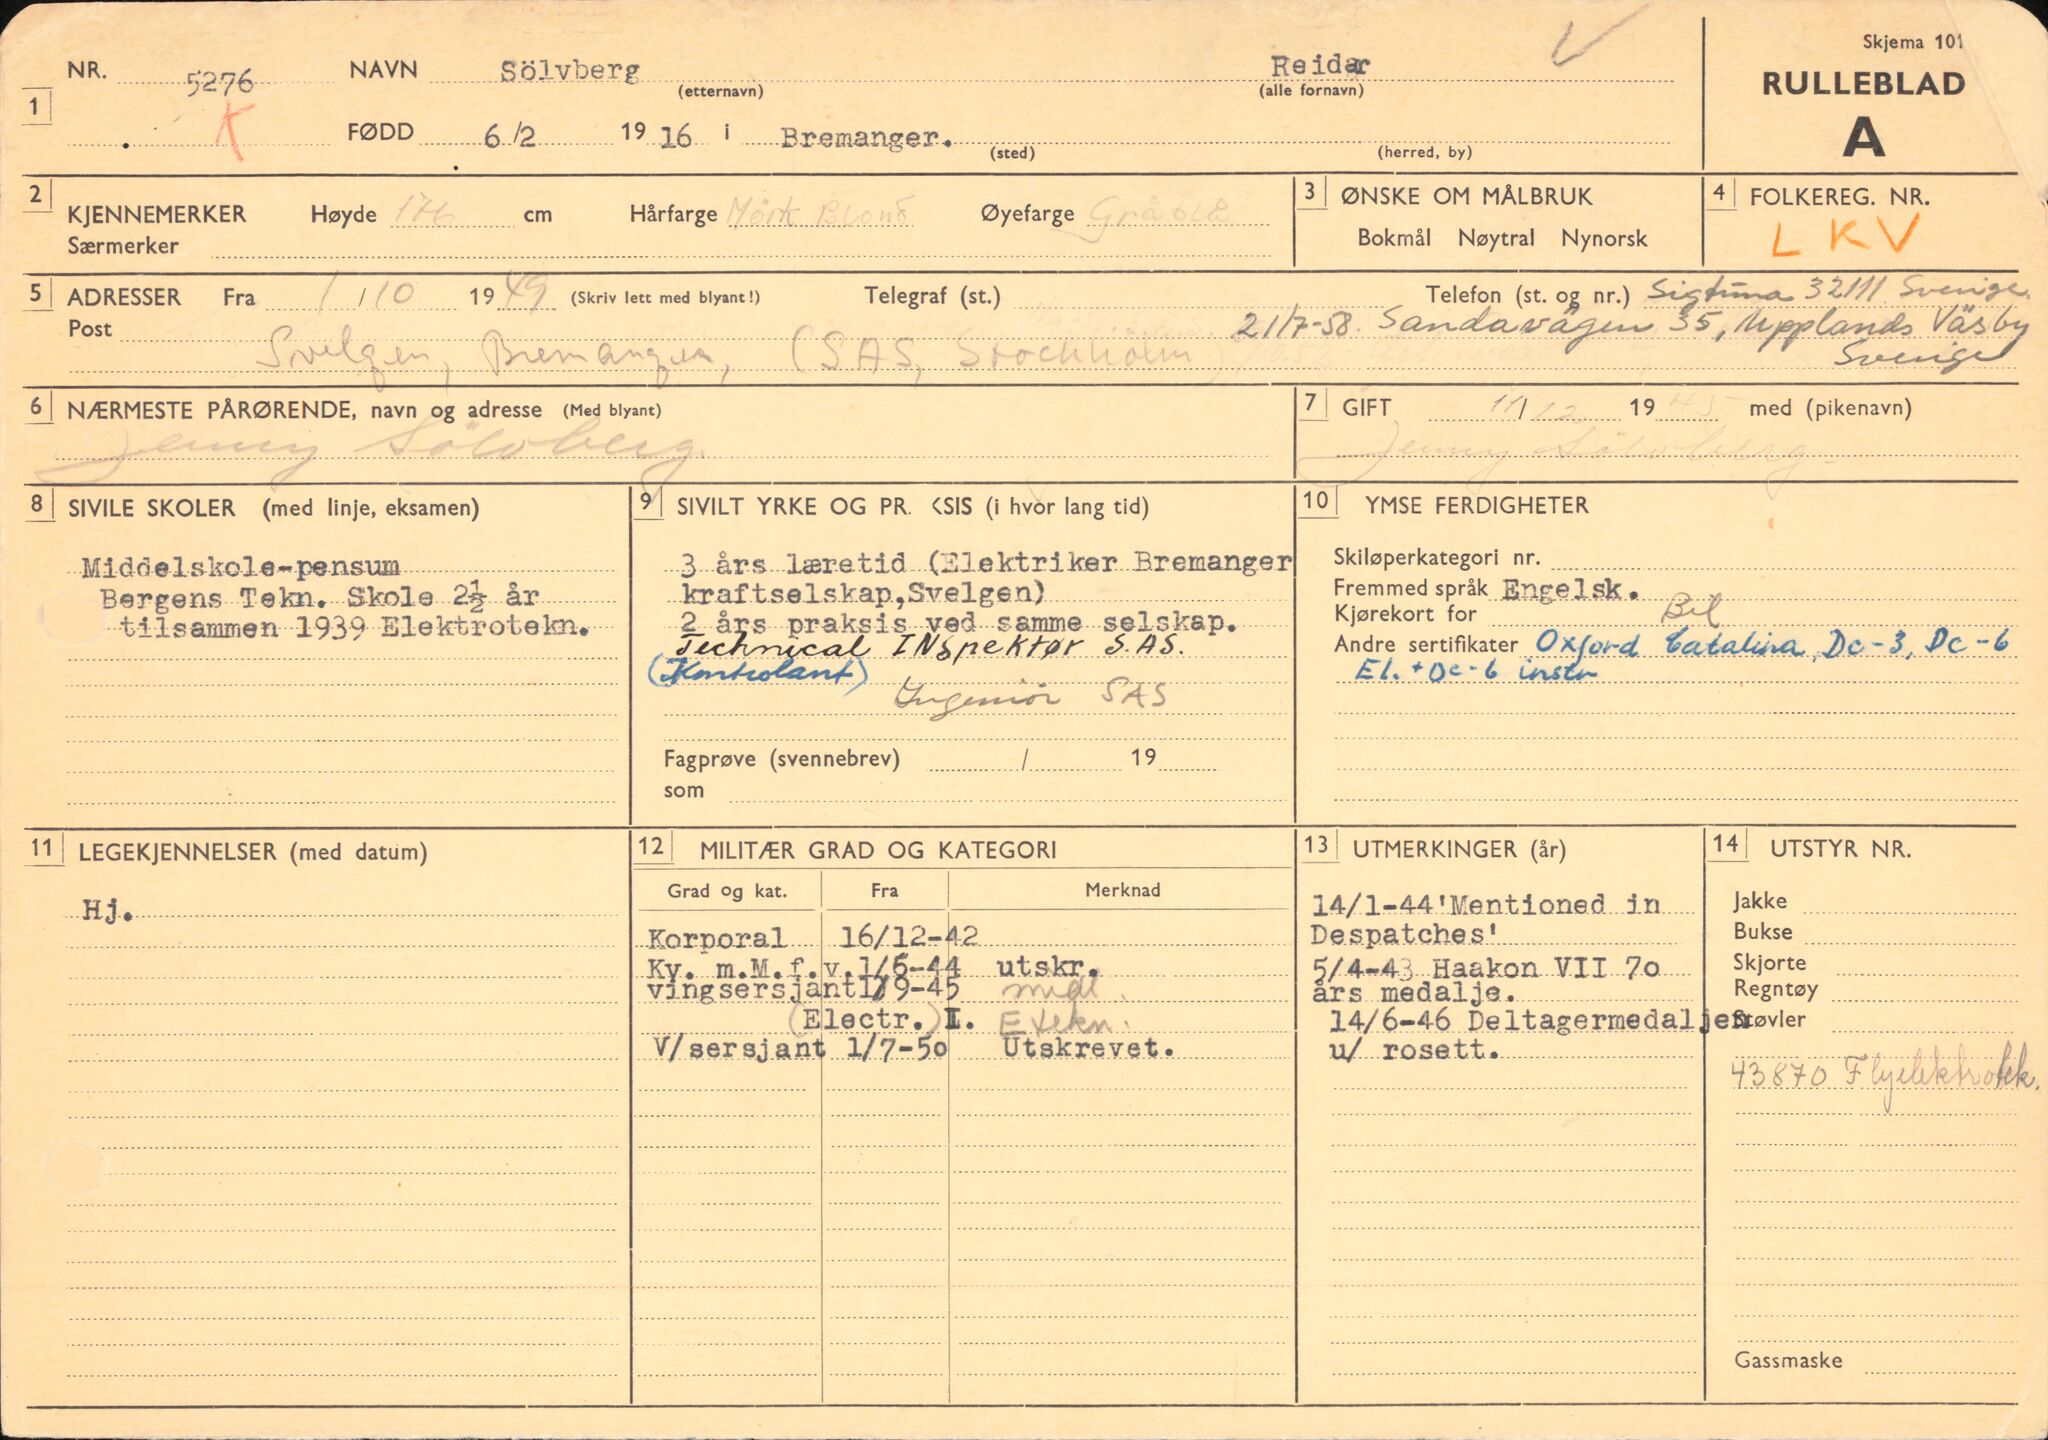 Skjema 101
RULLEBLAD
A
1 NR. 5276 NAVN Sölvberg (etternavn) Reidar (alle fornavn)
K
FØDD 6/2 1916 i Bremanger. (sted) (herred, by)
2 KJENNEMERKER Høyde 176 cm Hårfarge Mørk Blond Øyefarge Gråblå
Særmerker
3 ØNSKE OM MÅLBRUK
Bokmål Nøytral Nynorsk
4 FOLKEREG. NR.
LKV
5 ADRESSER Fra 1/10 1949 (Skriv lett med blyant!) Telegraf (st.) Telefon (st. og nr.) Sigtuna 32111 Sverige.
Post 21/7-58. Sandavägen 35, Upplands Väsby
Svelgen, Bremanger, (SAS, Stockholm) Sverige
6 NÆRMESTE PÅRØRENDE, navn og adresse (Med blyant)
Jenny Sölvberg.
7 GIFT 11/12 1945 med (pikenavn)
Jenny Sölvberg.
8 SIVILE SKOLER (med linje, eksamen)
Middelskole-pensum
Bergens Tekn. Skole 2½ år
tilsammen 1939 Elektrotekn.
9 SIVILT YRKE OG PR. KSIS (i hvor lang tid)
3 års læretid (Elektriker Bremanger
kraftselskap,Svelgen)
2 års praksis ved samme selskap.
Technical INspektør S.AS.
(Kontrolant)
Ingeniør SAS
Fagprøve (svennebrev) / 19
som
10 YMSE FERDIGHETER
Skiløperkategori nr.
Fremmed språk Engelsk.
Kjørekort for Bil
Andre sertifikater Oxford Catalina, Dc-3, Dc-6
El. + Dc-6 instr
11 LEGEKJENNELSER (med datum)
Hj.
12 MILITÆR GRAD OG KATEGORI
Grad og kat. Fra Merknad
Korporal 16/12-42
Kv. m.M.f.v. 1/6-44 utskr.
vingsersjant 1/9-45 midl.
(Electr.) I. Etekn.
V/sersjant 1/7-50 Utskrevet.
13 UTMERKINGER (år)
14/1-44'Mentioned in
Despatches'
5/4-43 Haakon VII 70
års medalje.
14/6-46 Deltagermedaljen
u/ rosett.
14 UTSTYR NR.
Jakke
Bukse
Skjorte
Regntøy
Støvler
43870 Flyelektrotek.
Gassmaske